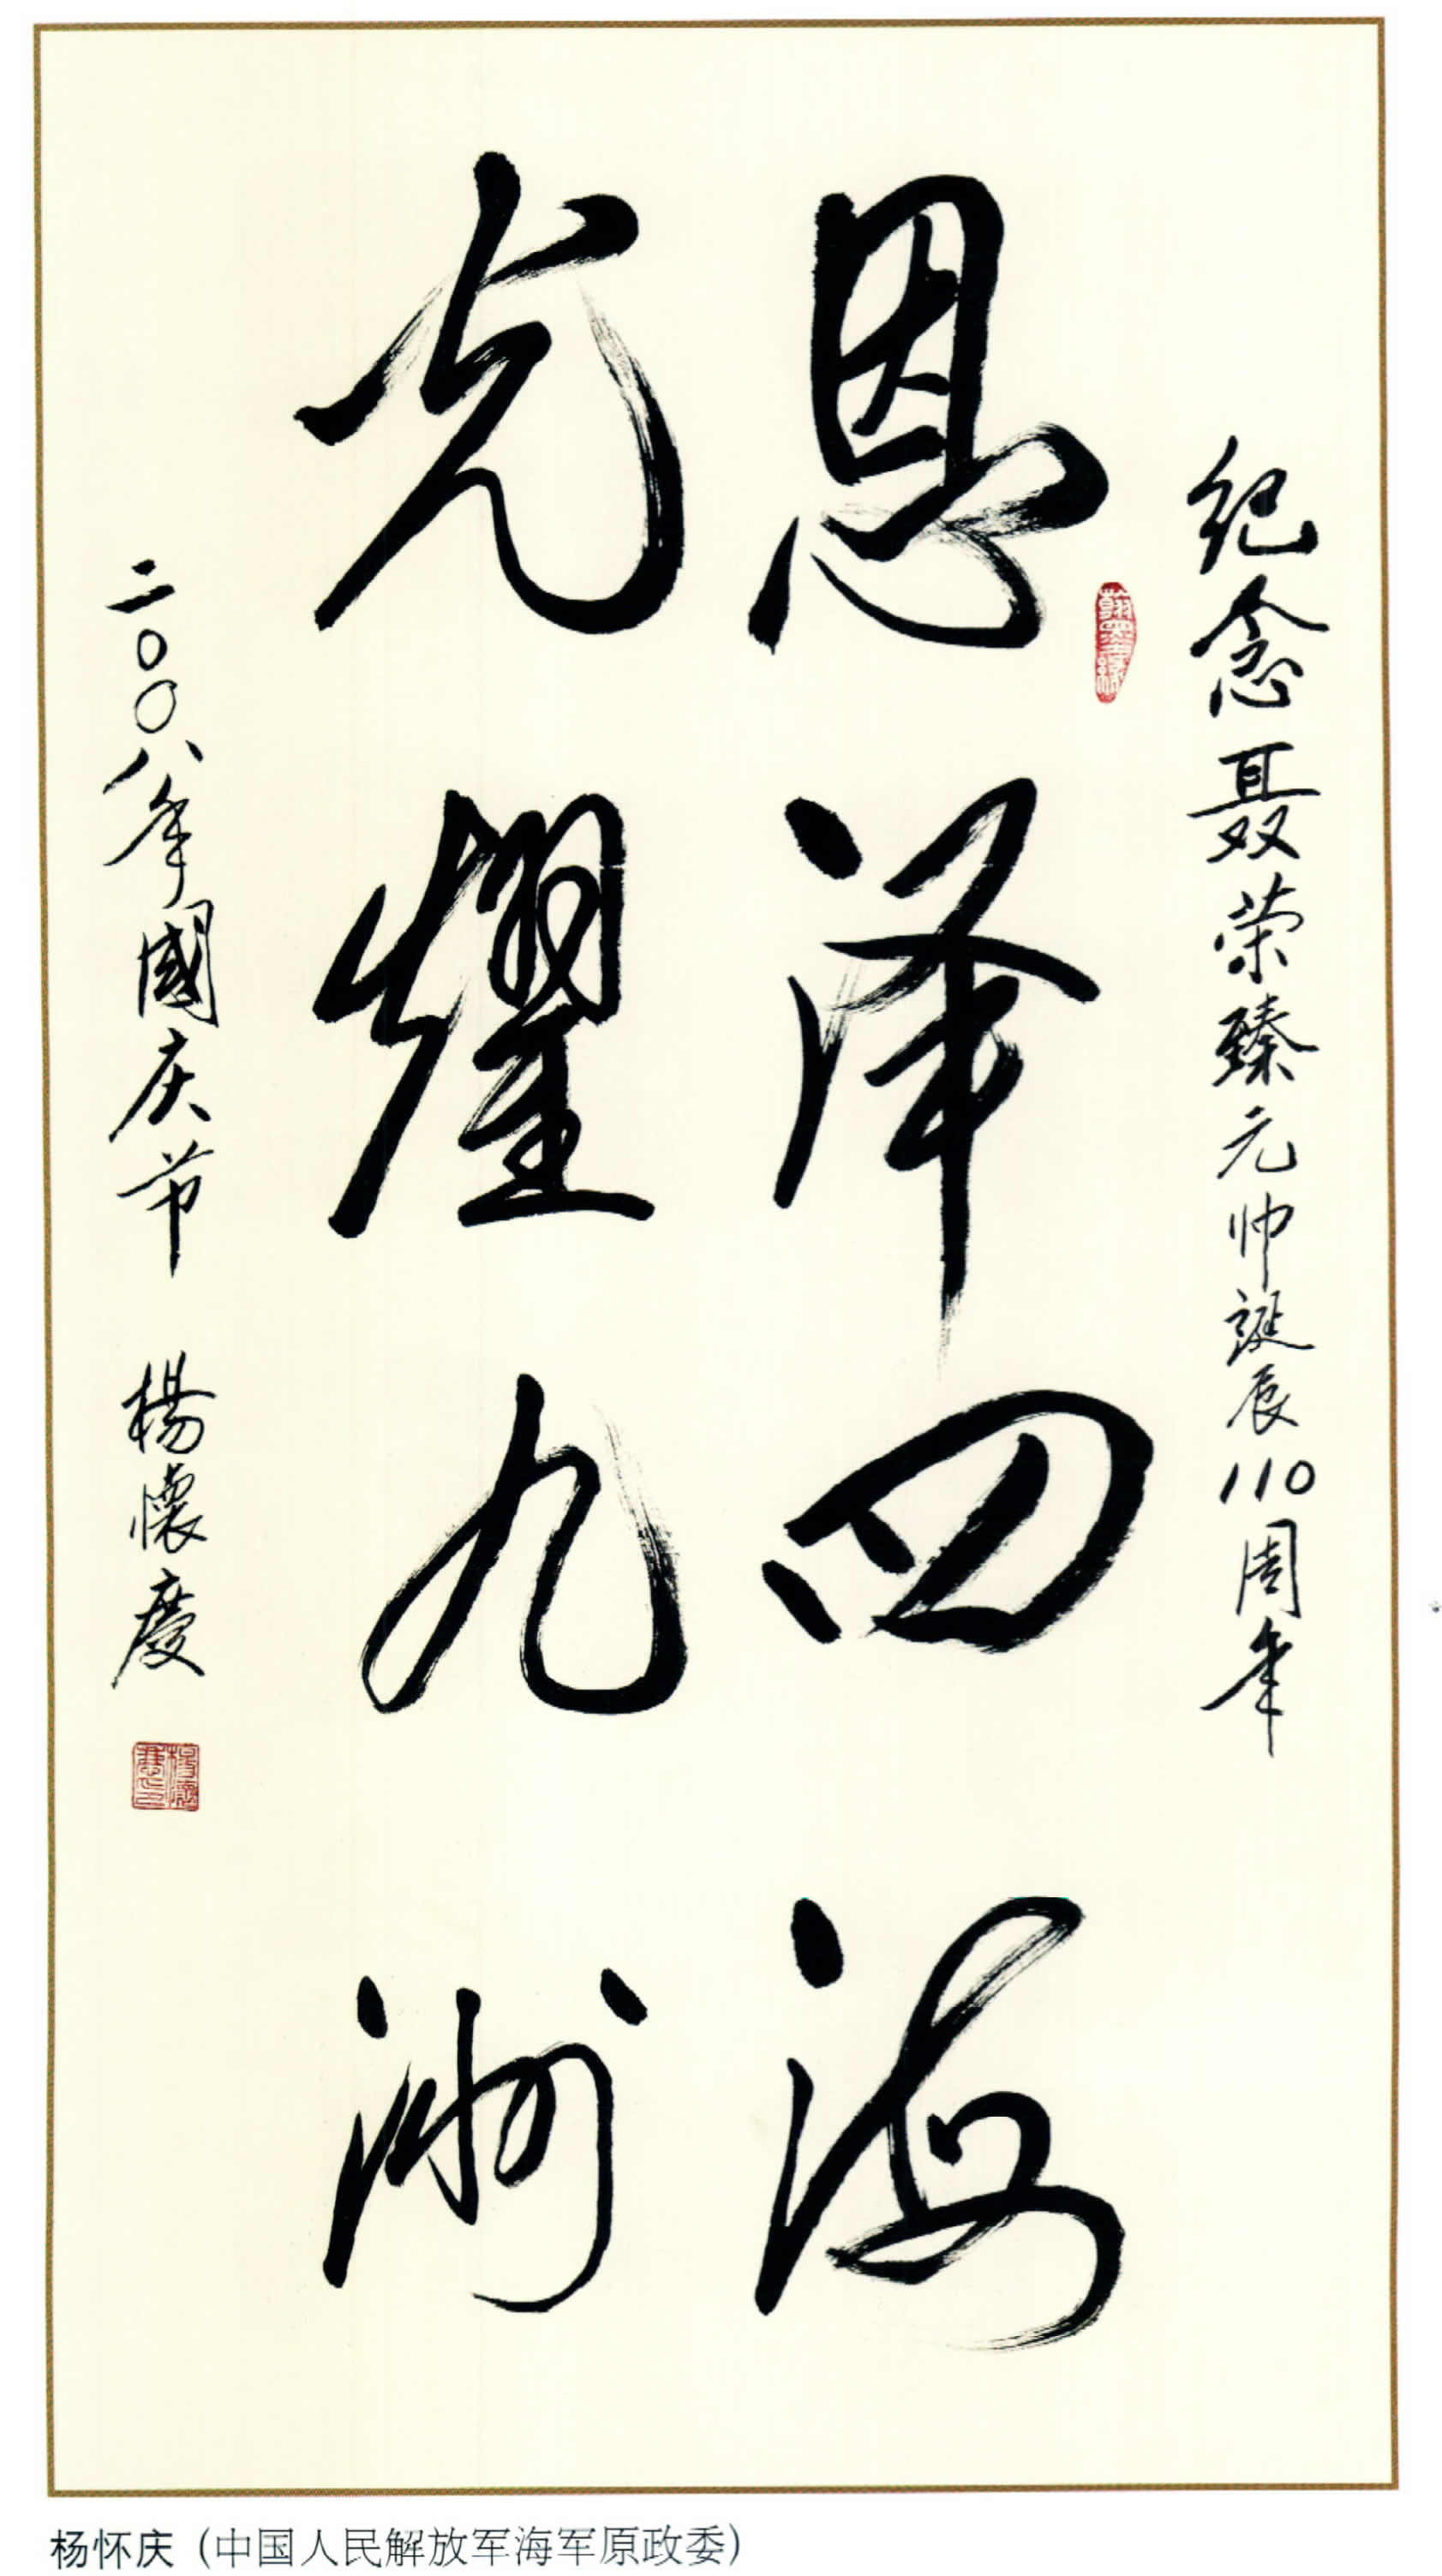 纪念聂荣臻元帅誕辰110周年
恩泽四海
光耀九洲
二〇〇八年國庆节 楊懷慶
翰墨缘
杨怀庆（中国人民解放军海军原政委）